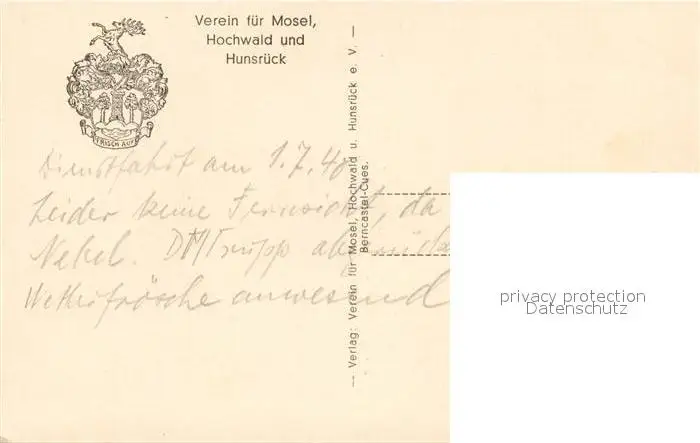 Verein für Mosel,
Hochwald und
Hunsrück
FRISCH AUF
Dienstfahrt am 1.7.40
Leider keine Fernsicht, da
Nebel.
Wetterfrösche anwesend
— Verlag: Verein für Mosel, Hochwald u. Hunsrück e. V. —
Berncastel-Cues.
privacy protection
Datenschutz